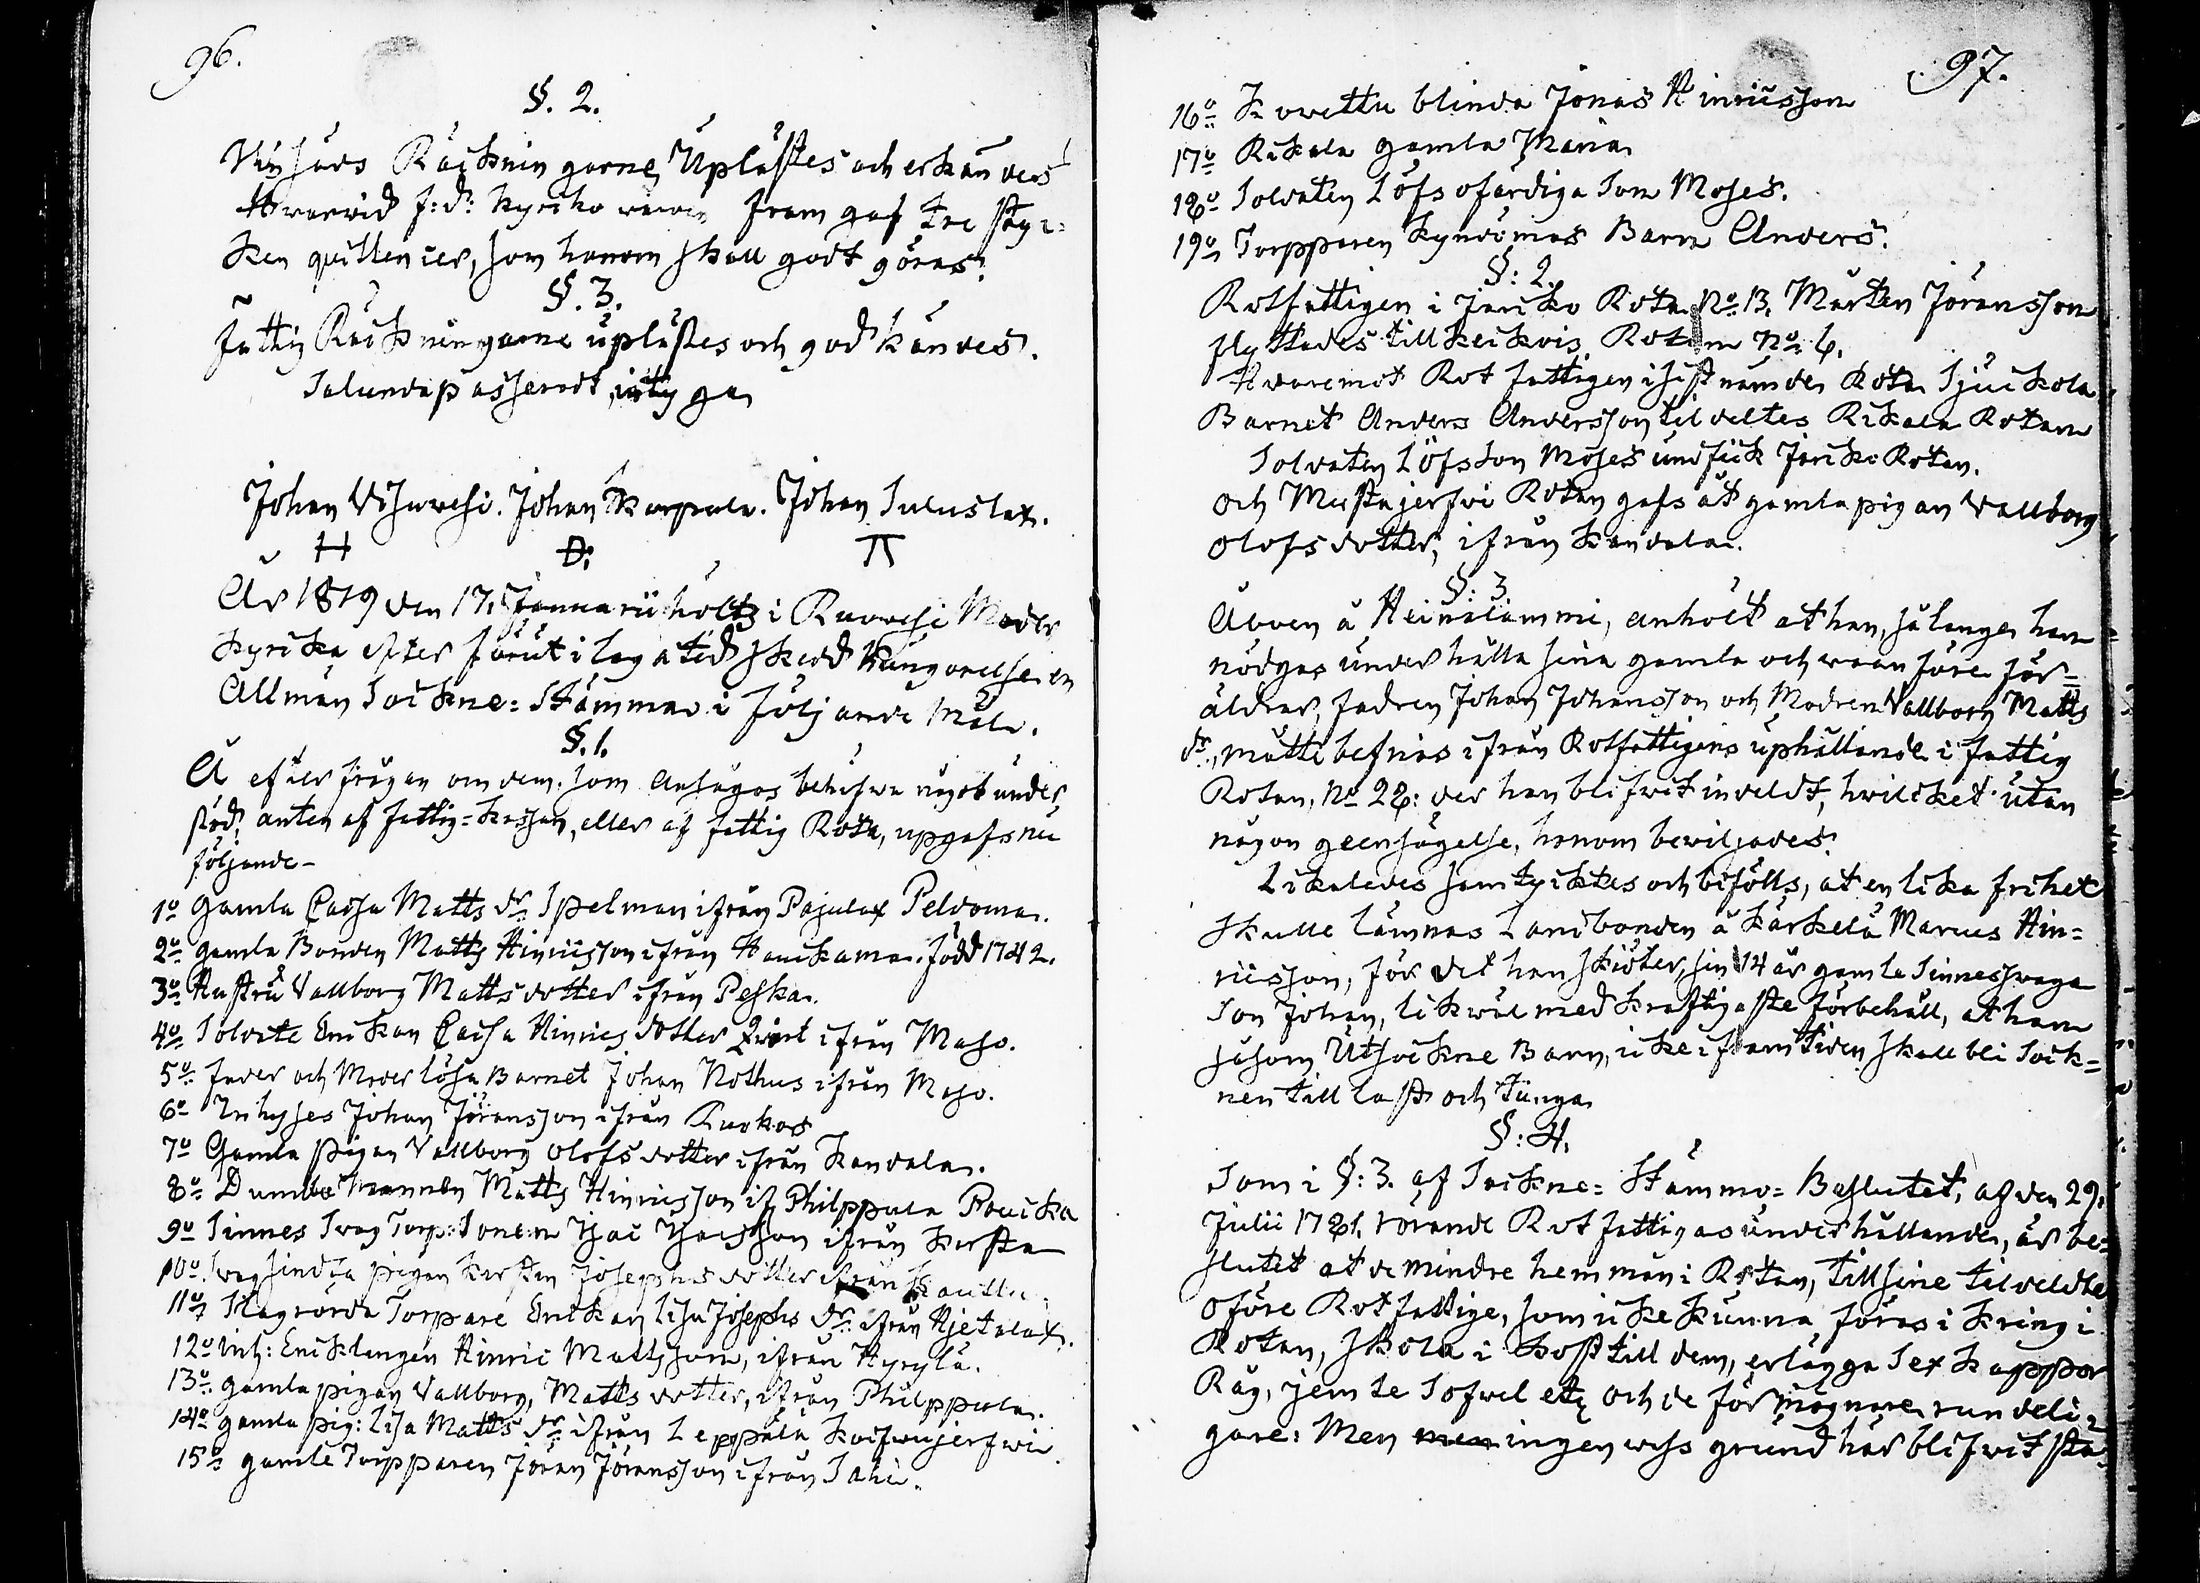 96.
§. 2.
Räckningarne Uplästes och erkändes
Hvarvid f:d: Kyrcko fram gaf tre styc=
ken quittencier, som honom skall godt göras.
§. 3.
Fattig Räckningarne uplästes och godkändes.
Salunda passeradt, intyga
Johan Johan Karpala. Johan Suluslax.
H D: π
År 1819 den 17. Januarii höltz i Ruovesi Moder
kyrcka efter förut i laga tid skedd Kungörelse en
Allmän Sockne=Stämma i följande Mål.
§. 1.
Å efter frågan om dem, som ansågos behöfva något under
stöd, anten af fattig=Kassan, eller af fattig Rota, upgafs nu
följande-
1o Gamla Caisa Matts dr. Spelman ifrån Pajulax Peldoma.
2o gamla Bonden Matts Hinricsson ifrån Hauckama. född 1742.
3o Hustru Vallborg Mattsdotter ifrån Peska.
4o Soldate Enckan Caisa Hinrics dotter Qvist ifrån Maso.
5o Fader och Moder lösa Barnet Johan Nothus ifrån Maso.
6o Inhyses Johan Jöransson ifrån Ruokos
7o Gamla Pigan Vallborg Olofsdotter ifrån Kandala.
8o Dumbe Mannen Matts Hinricsson if Philppula Poucka
9o Sinnes Svag Torp: Sonen Isac Isacsson ifrån Kersta
10o Svagsindta Pigan Kersten Josephsdotter ifrån Kauttu.
11o Slagrörda Torpare Enckan Lisa Josephs dr. ifrån Hjetalax.
12o Inh: Encklingen Hinric Mattsson, ifrån Hyrylä.
13o gamla pigan Vallborg, Matts dotter, ifrån Philppula.
14o gamla pig: Lisa Matts dr ifrån Leppälä Koifvujerfwi
15o gamle Torpparen Jöran Jöransson ifrån Sahi.
97.
16o Kovettu blinda Jonas Hinricsson
17o Rikala gamla Maria
18o Soldaten Löfs ofärdiga Son Moses.
19o Torpparen Kyndömas Barn Anders.
§: 2.
Rotfattigen i Järicko Rota No. 13. Mårten Jöransson
flyttades till Keickois Rotan No. 6.
Hvaremot Rot fattigen i sistnämnde Rota Sjuckola
Barnet Anders Andersson tildeltes Rikala Rotan
Soldaten Löfs Son Moses undfick Järicko Rotan.
och Mustajerfvi Rotan gafs åt gamla pigan Vallborg
Olofsdotter, ifrån Kandala.
§: 3.
Åboen å Heinälammi, anhölt at han, så länge han
nödgas underhålla sina gamla och wanföre för=
äldrar, fadren Johan Johansson och Modren Vallborg Matts
dr, måtte befrias ifrån Rotfattigens uphållande i fattig
Rotan, No 22: der han blifvit indeldt, hvilcket utan
någon geensägelse, honom beviljades.
Likaledes samtycktes och biföllls, at en lika frihet
skulle lämnas Landbonden å Kärkelä Marcus Hin=
ricsson, för det han skiöter, sin 14 år gamla Sinnessvaga
Son Johan, likväl med kraftigaste förbehåll, at han
såsom Utsockne Barn, icke i framtiden skall bli Sock=
nen till last och tunga
§: 4.
Som i §: 3. af Sockne=Stämmo=Beslutet, af den 29.
Julii 1781. rörande Rot fattigas underhållande, är be=
slutet at de mindre hemman i Rotan, till sine tildeldte
oföre Rotfattige, som icke kunna föras i kring i
Rotan, skola i kost till dem, erlägga Sex kappar
Råg, jemte Sofvel etc och de förmögnare rundeli=
gare: Men ingen viss grund här blifvit sta=